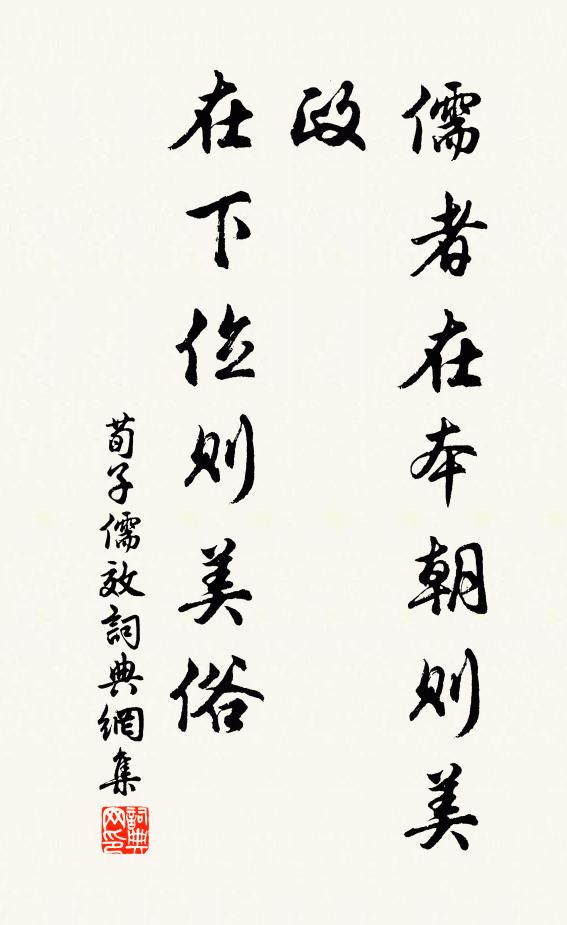 儒者在本朝則美
政
在下位則美俗
荀子儒效詞典網集
詞典网印